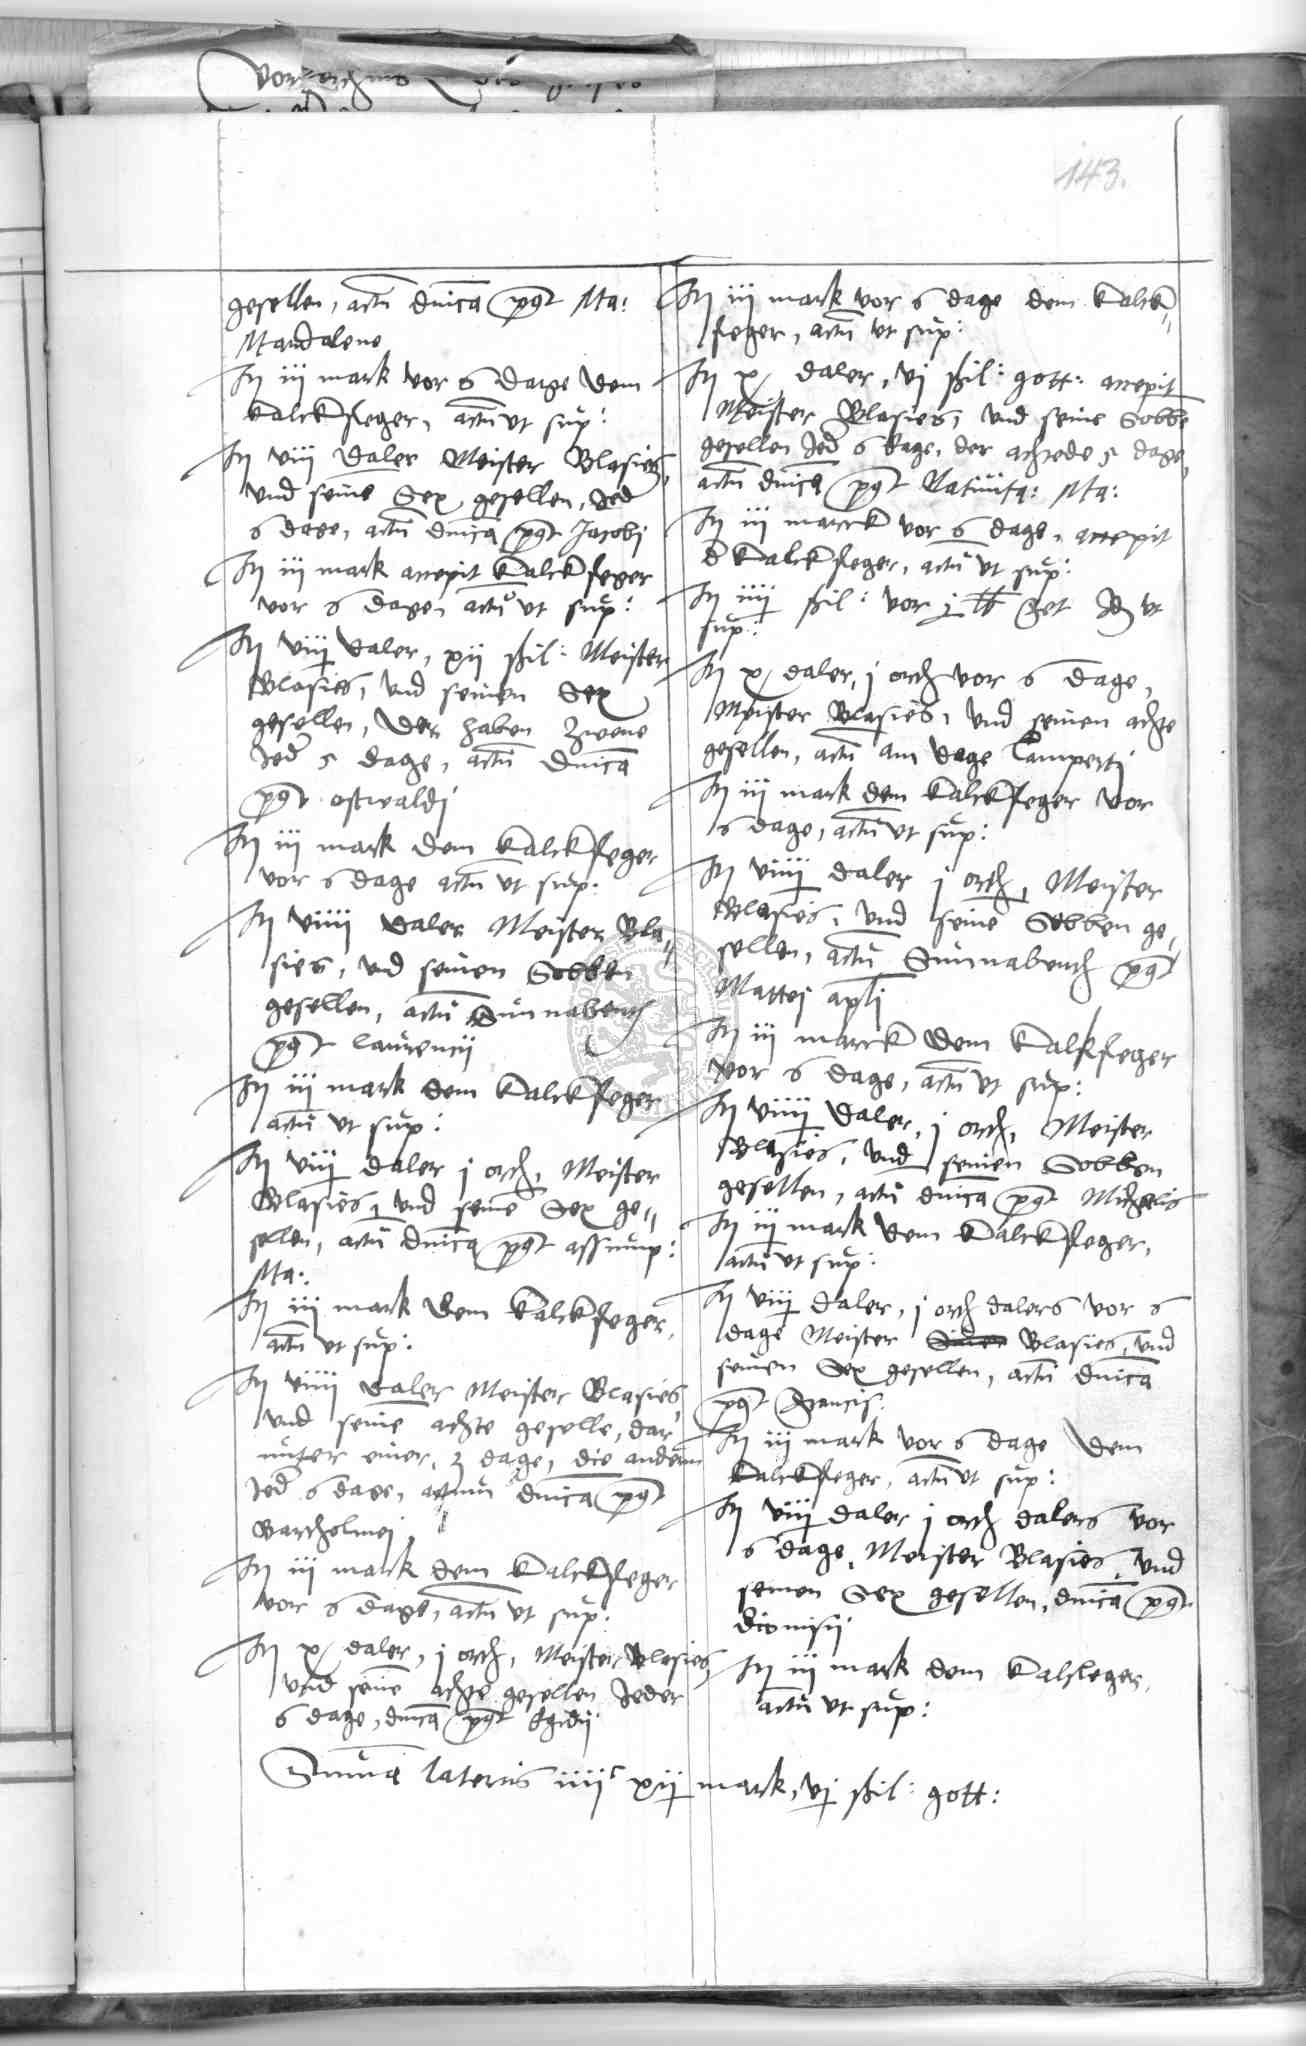 143.
gesellen, actu dnica pqt Ma:
Mandalene
It iii mark vor 6 dage dem
kalckfleger, actu vt sup:
It viii daler Meister Blasies,
vnd seine Sex gesellen, Jed
6 dage, actu dnica pqt Jacobj
It iii mark accepit kalckfleger
vor 6 dagen actu vt sup:
It viij daler, xij ßil: Meister
Blasies, vnd seinen Sex
gesellen, der haben zwene
Jed 5 dage, actu dnica
pqt ostwaldj
It iii mark dem kalckfleger
vor 6 dage actu vt sup:
It viiii daler Meister Bla„
sies, vnd seinen Sobben
gesellen, actu Sunnabench
pqt laurencij
It iii mark dem kalckfleger
actu vt sup:
It viij daler j orch, Meister
Blasies, vnd seine Sex ge„
sellen, actu dnica pqt assump:
Ma:
It iii mark dem kalckfleger,
actu vt sup:
It viiii daler Meister Blasies,
vnd seine achte geselle, dar
unter einer, 3 dage, die andern
Jed 6 dage, actum dnica pqt
Bartholmej
It iii mark dem kalckfleger
vor 6 dage, actu vt sup:
It x daler, j orch, Meister Blasies
vnd seine achte gesellen Jeder
6 dage, dnica pqt Egidij
It iii mark vor 6 dage dem kalck„
fleger, actu vt sup:
It x daler, vj ßil: gott: accepit
Meister Blasies, vnd seine Sobbe
gesellen Jed 6 dage, der achtede 5 dage,
actu dnica pqt Natiuita: Ma:
It iii marck vor 6 dage, accepit
d kalckfleger, actu vt sup:
It iiij ßil: vor j lb vt
sup:
It x daler, j orch vor 6 dage,
Meister Blasies, vnd seinen achte
gesellen, actu am dage Lampertj
It iii mark dem kalckfleger vor
6 dage, actu vt sup:
It viiij daler j orch, Meister
Blasies, vnd seine Sobben ge„
sellen, actu Sunnabench pqt
Mattej apli
It iii marck dem kalkfleger
vor 6 dage, actu vt sup:
It viiij daler, j orch, Meister
Blasies, vnd seinen Sobben
gesellen, actu dnica pqt Michelis
It iij mark dem kalckfleger,
actu vt sup:
It viij daler, j orch dalers vor 6
dage Meister Blasies, vnd
seinen Sex gesellen, actu dnica
pqt Francis:
It iij mark vor 6 dage dem
kalckfleger, actu vt sup:
It viij daler j orch dalers vor
6 dage, Meister Blasies, vnd
seinen Sex gesellen, dnica pqt
Dionisij
It iii mark dem kalsleger,
actu vt sup:
Summa lateris iiiic xij mark, vj ßil: gott: